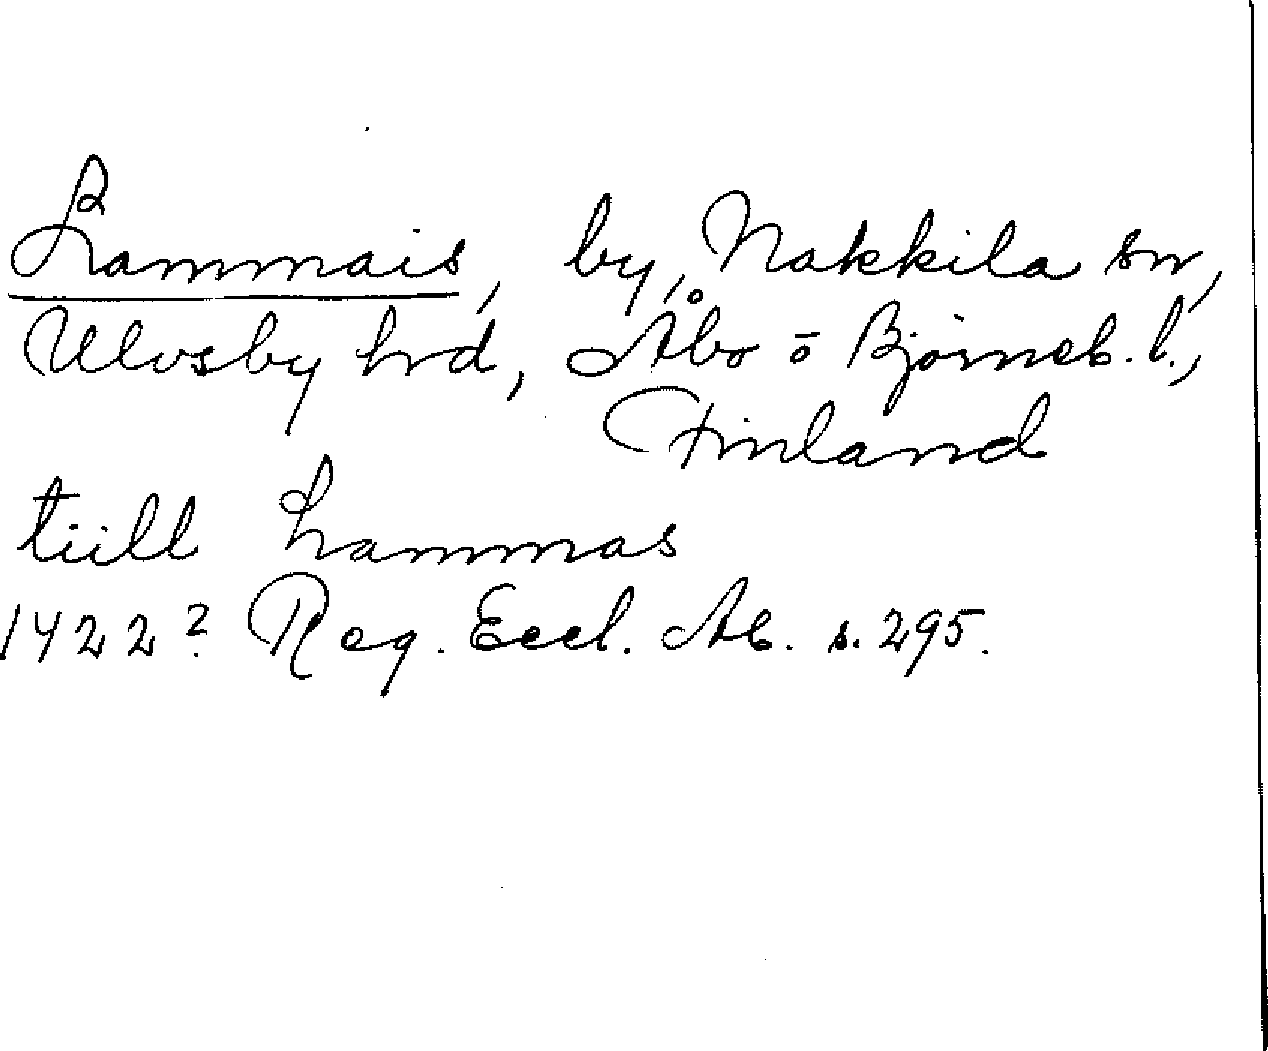 Lammais, by, Nakkila sn,
Ulvsby hrd, Åbo o Björneb. l.,
Finland
tiill Lammas
1422? Reg. Eccl. Ab. s. 295.